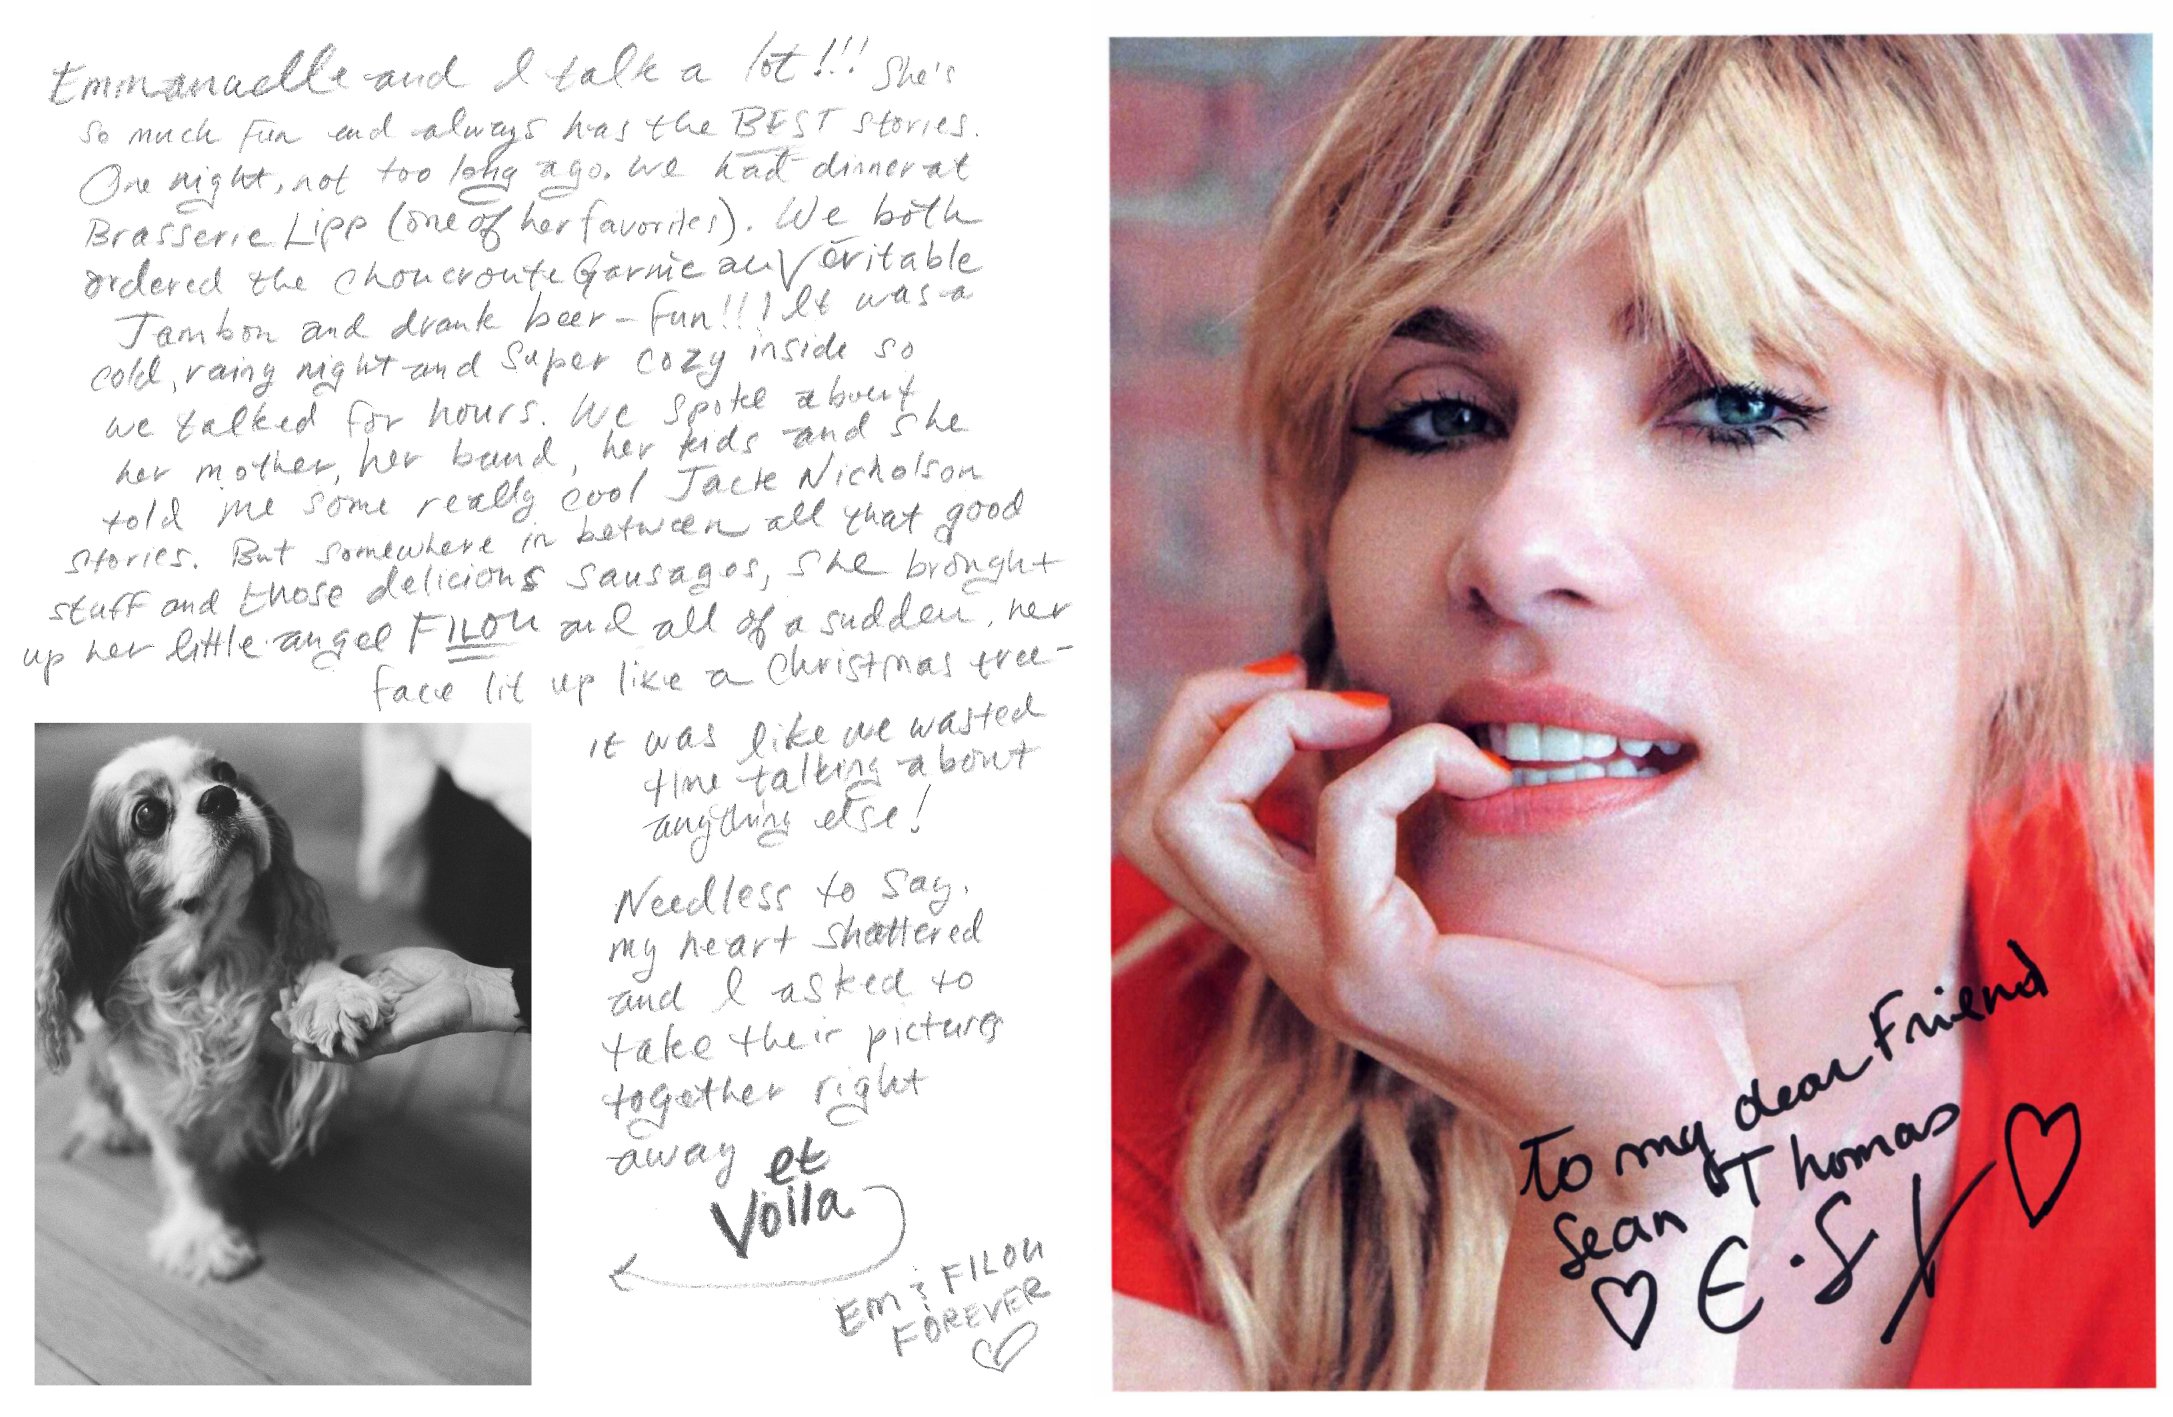 Emmanuelle and I talk a lot!!! She's
so much fun and always has the BEST stories.
One night, not too long ago. We had dinner at
Brasserie Lipp (one of her favorites). We both
ordered the choucroute Garnie au Véritable
Jambon and drank beer - fun!!! It was a
cold, rainy night and super cozy inside so
we talked for hours. We spoke about
her mother, her band, her kids and she
told me some really cool Jack Nicholson
stories. But somewhere in between all that good
stuff and those delicious sausages, she brought
up her little angel FILOU and all of a sudden, her
face lit up like a Christmas tree -
it was like we wasted
time talking about
anything else!
Needless to say,
my heart shattered
and I asked to
take their picture
together right
away et
Voila
Em & FILOU
FOREVER
To my dear Friend
Sean Thomas
E.S